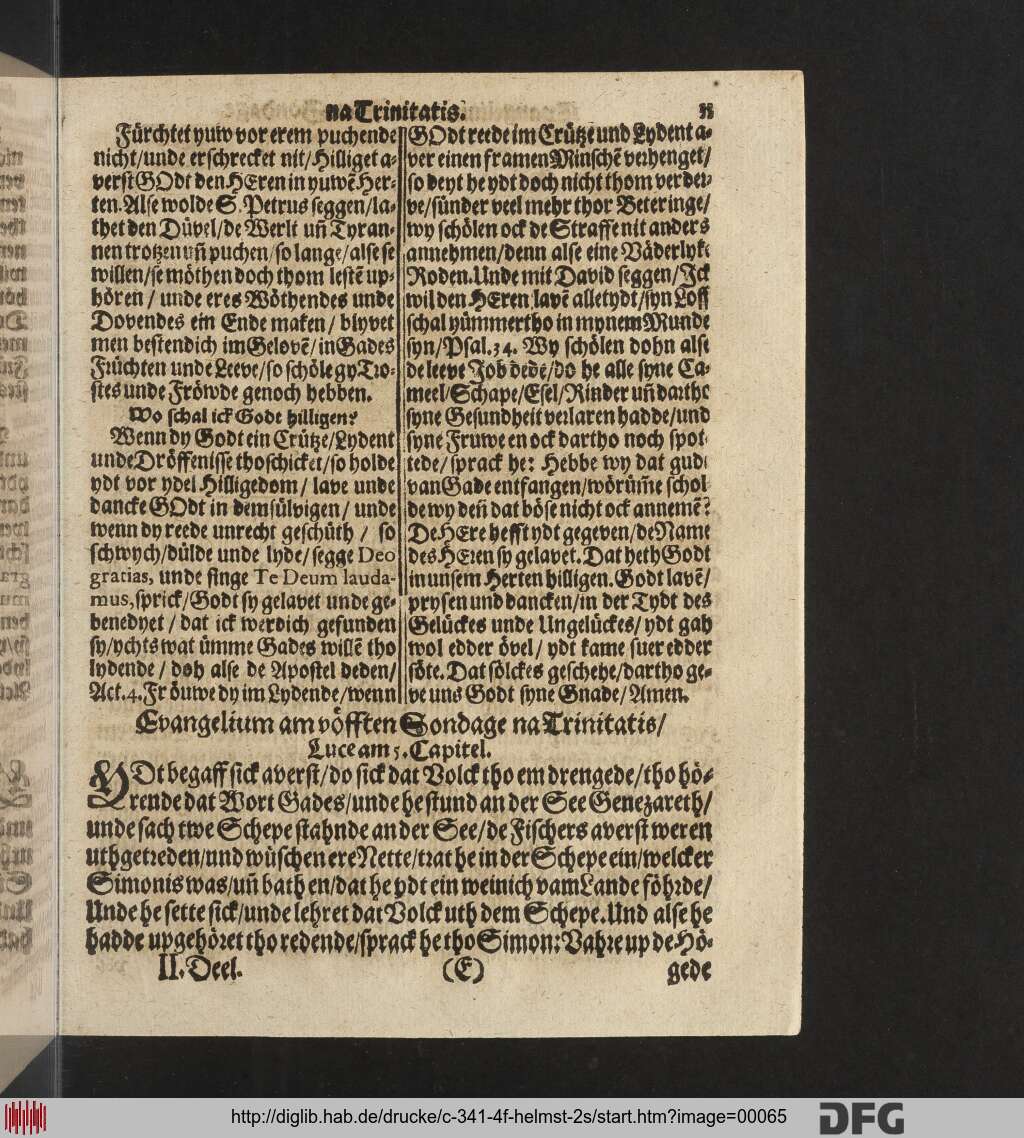 na Trinitatis.
33
Fürchtet yuw vor erem puchende
nicht/unde erschrecket nit/Hilliget a-
verst GOdt den HEren in yuwē Her-
ten. Alse wolde S. Petrus seggen/la-
thet den Düvel/de Werlt uñ Tyran-
nen trotzen uñ puchen/so lange/alse se
willen/se möthen doch thom lestē up-
hören/unde eres Wöthendes unde
Dovendes ein Ende maken/blyvet
men bestendich im Gelovē/in Gades
Früchten unde Leeve/so schöle gy Tro-
stes unde Fröwde genoch hebben.
Wo schal ick Godt hilligen?
Wenn dy Godt ein Crütze/Lydent
unde Dröffenisse thoschicket/so holde
ydt vor ydel Hilligedom/lave unde
dancke GOdt in demsülvigen/unde
wenn dy reede unrecht geschüth/so
schwych/dülde unde lyde/segge Deo
gratias, unde singe Te Deum lauda-
mus, sprick/Godt sy gelavet unde ge-
benedyet/dat ick werdich gefunden
sy/ychts wat ümme Gades willē tho
lydende/doh alse de Apostel deden/
Act. 4. Fröuwe dy im Lydende/wenn
GOdt reede im Crütze und Lydent a-
ver einen framen Minschē verhenget/
so deyt he ydt doch nicht thom verder-
ve/sünder veel mehr thor Beteringe/
wy schölen ock de Straffe nit anders
annehmen/denn alse eine Väderlyke
Roden. Unde mit David seggen/Ick
wil den HEren lavē alletydt/syn Loff
schal yümmertho in mynem Munde
syn/Psal. 34. Wy schölen dohn alse
de leeve Job dede/do he alle syne Ca-
meel/Schape/Esel/Rinder uñ dartho
syne Gesundheit verlaren hadde/und
syne Fruwe en ock dartho noch spot-
tede/sprack he: Hebbe wy dat gude
van Gade entfangen/wörüm̄e schol-
de wy deñ dat böse nicht ock annemē?
De HEre hefft ydt gegeven/de Name
des HEren sy gelavet. Dat heth Godt
in unsem Herten hilligen. Godt lavē/
prysen und dancken/in der Tydt des
Gelückes unde Ungelückes/ydt gah
wol edder övel/ydt kame suer edder
söte. Dat sölckes geschehe/dartho ge-
ve uns Godt syne Gnade/Amen.
Evangelium am vöfften Sondage na Trinitatis/
Luce am 5. Capitel.
YDt begaff sick averst/do sick dat Volck tho em drengede/tho hö-
rende dat Wort Gades/unde he stund an der See Genezareth/
unde sach twe Schepe stahnde an der See/de Fischers averst weren
uthgetreden/und wüschen ere Nette/trat he in der Schepe ein/welcker
Simonis was/uñ bath en/dat he ydt ein weinich vam Lande föhrde/
Unde he sette sick/unde lehret dat Volck uth dem Schepe. Und alse he
hadde upgehöret tho redende/sprack he tho Simon: Vahre up de Hö-
II. Deel.
(E)
gede
http://diglib.hab.de/drucke/c-341-4f-helmst-2s/start.htm?image=00065
DFG